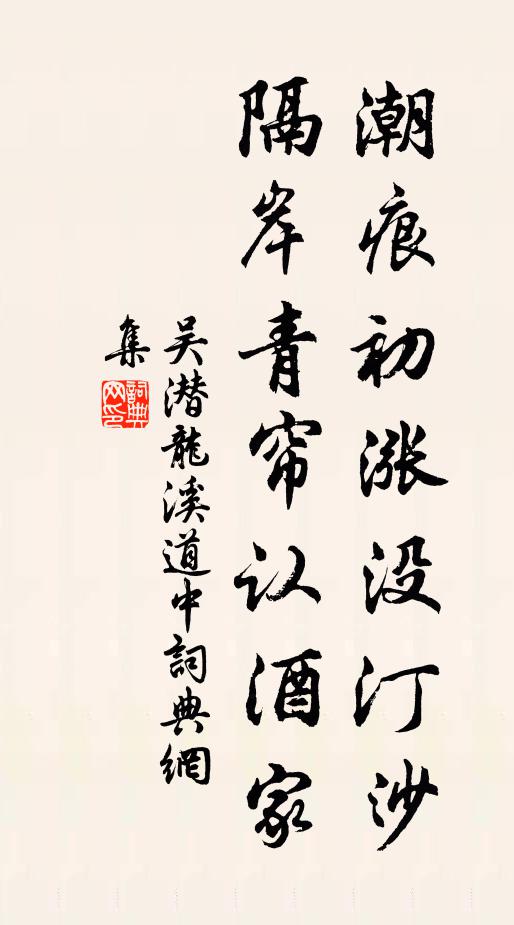 潮痕初涨没汀沙
隔岸青帘认酒家
吴潜龍溪道中詞典網
集
詞典网印